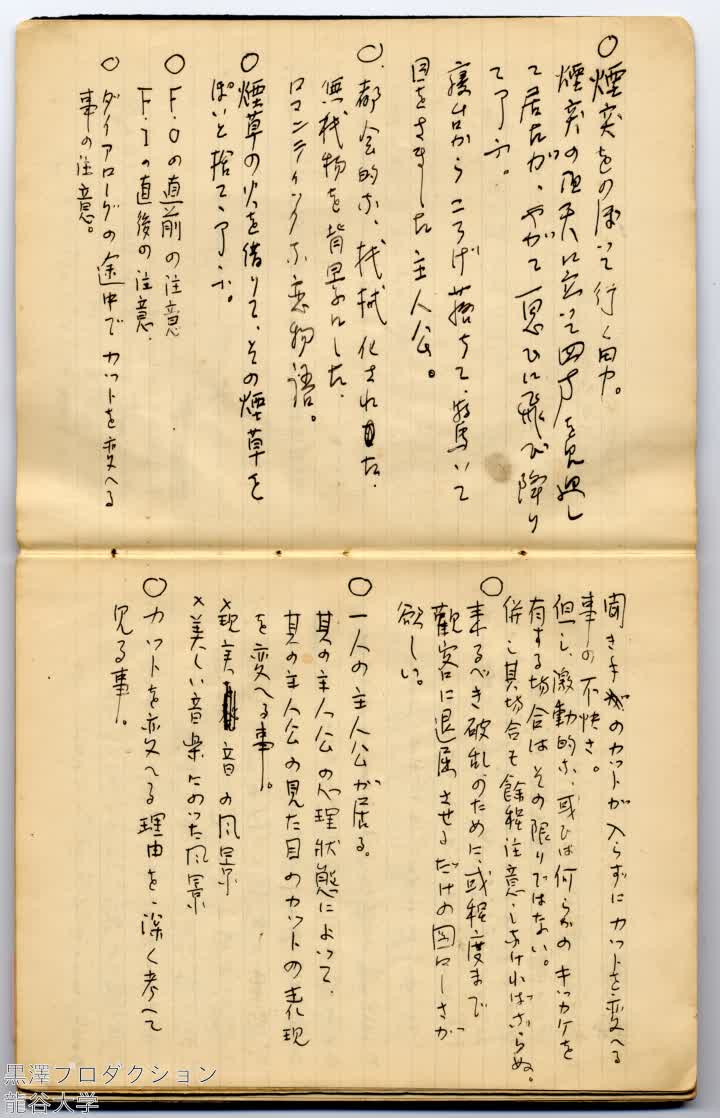 ○煙突をのぼって行く男。
煙突の頂天に立って四方を見廻し
て居たが、やがて一思ひに飛び降り
て了ふ。
寝台からころげ落ちて、驚いて
目をさました主人公。
○都会的な、機械化された、
無機物を背景にした、
ロマンティックな恋物語。
○煙草の火を借りて、その煙草を
ぽいと捨てゝ了ふ。
○F.Oの直前の注意
F.Iの直後の注意、
○ダイアローグの途中でカットを変へる
事の注意。
聞き手のカットが入らずにカットを変へる
事の不快さ。
但し、激動的な、或ひは何らかのキッカケを
有する場合はその限りではない。
併し其場合も餘程注意しなければならぬ。
○来るべき破乱のために、或程度まで
観客に退屈させるだけの図々しさが
欲しい。
○一人の主人公が居る。
其の主人公の心理状態によって、
其の主人公の見た目のカットの表現
を変へる事。
×現実音の風景
×美しい音楽にのった風景
○カットを変へる理由を深く考へて
見る事。
黒澤プロダクション
龍谷大学